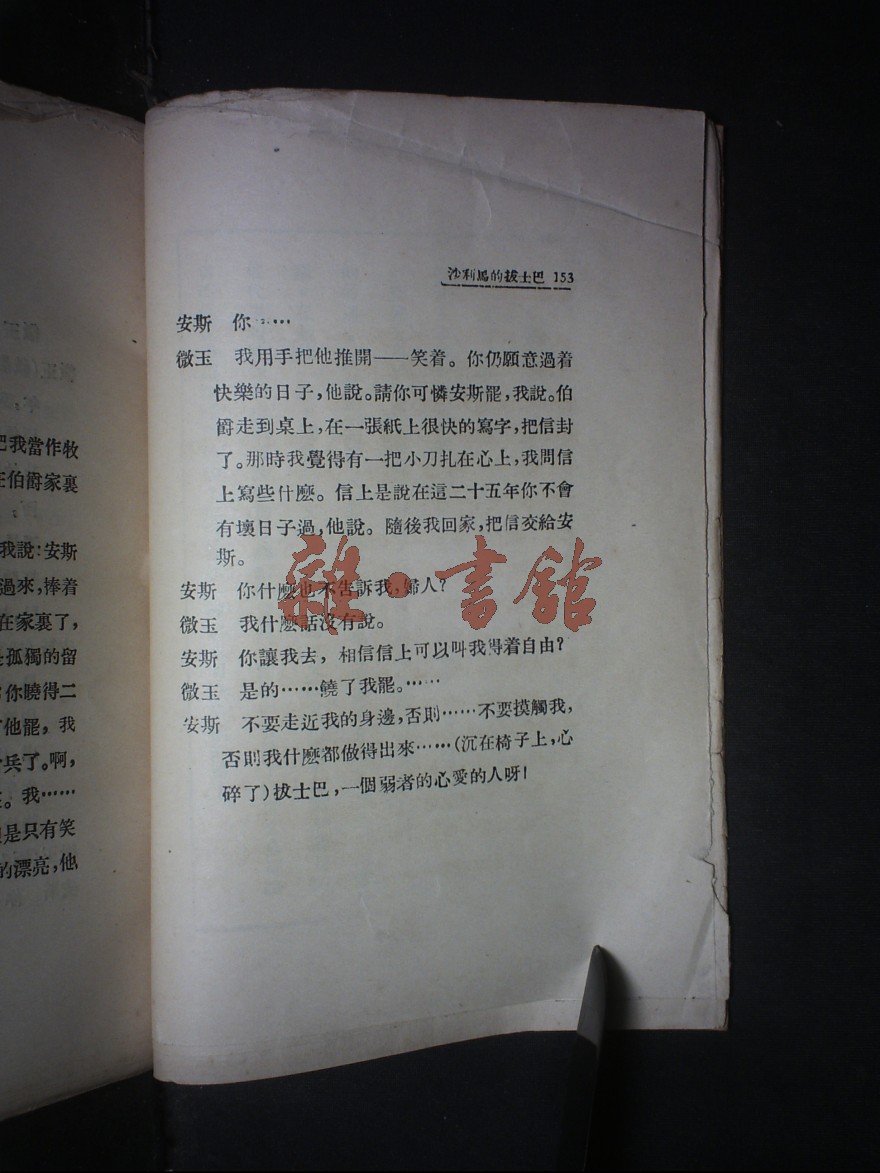 把我當作牧
在伯爵家裏
我說：安斯
過來，捧着
在家裏了，
是孤獨的留
你曉得二
他罷，我
兵了。啊，
。我……
是只有笑
的漂亮，他
沙利馬的拔士巴 153
安斯 你……
微玉 我用手把他推開——笑着。你仍願意過着
快樂的日子，他說。請你可憐安斯罷，我說。伯
爵走到桌上，在一張紙上很快的寫字，把信封
了。那時我覺得有一把小刀扎在心上，我問信
上寫些什麽。信上是說在這二十五年你不會
有壞日子過，他說。隨後我回家，把信交給安
斯。
安斯 你什麽也不告訴我，婦人？
微玉 我什麽話沒有說。
安斯 你讓我去，相信信上可以叫我得着自由？
微玉 是的……饒了我罷。……
安斯 不要走近我的身邊，否則……不要摸觸我，
否則我什麽都做得出來……（沉在椅子上，心
碎了）拔士巴，一個弱者的心愛的人呀！
雜·書館